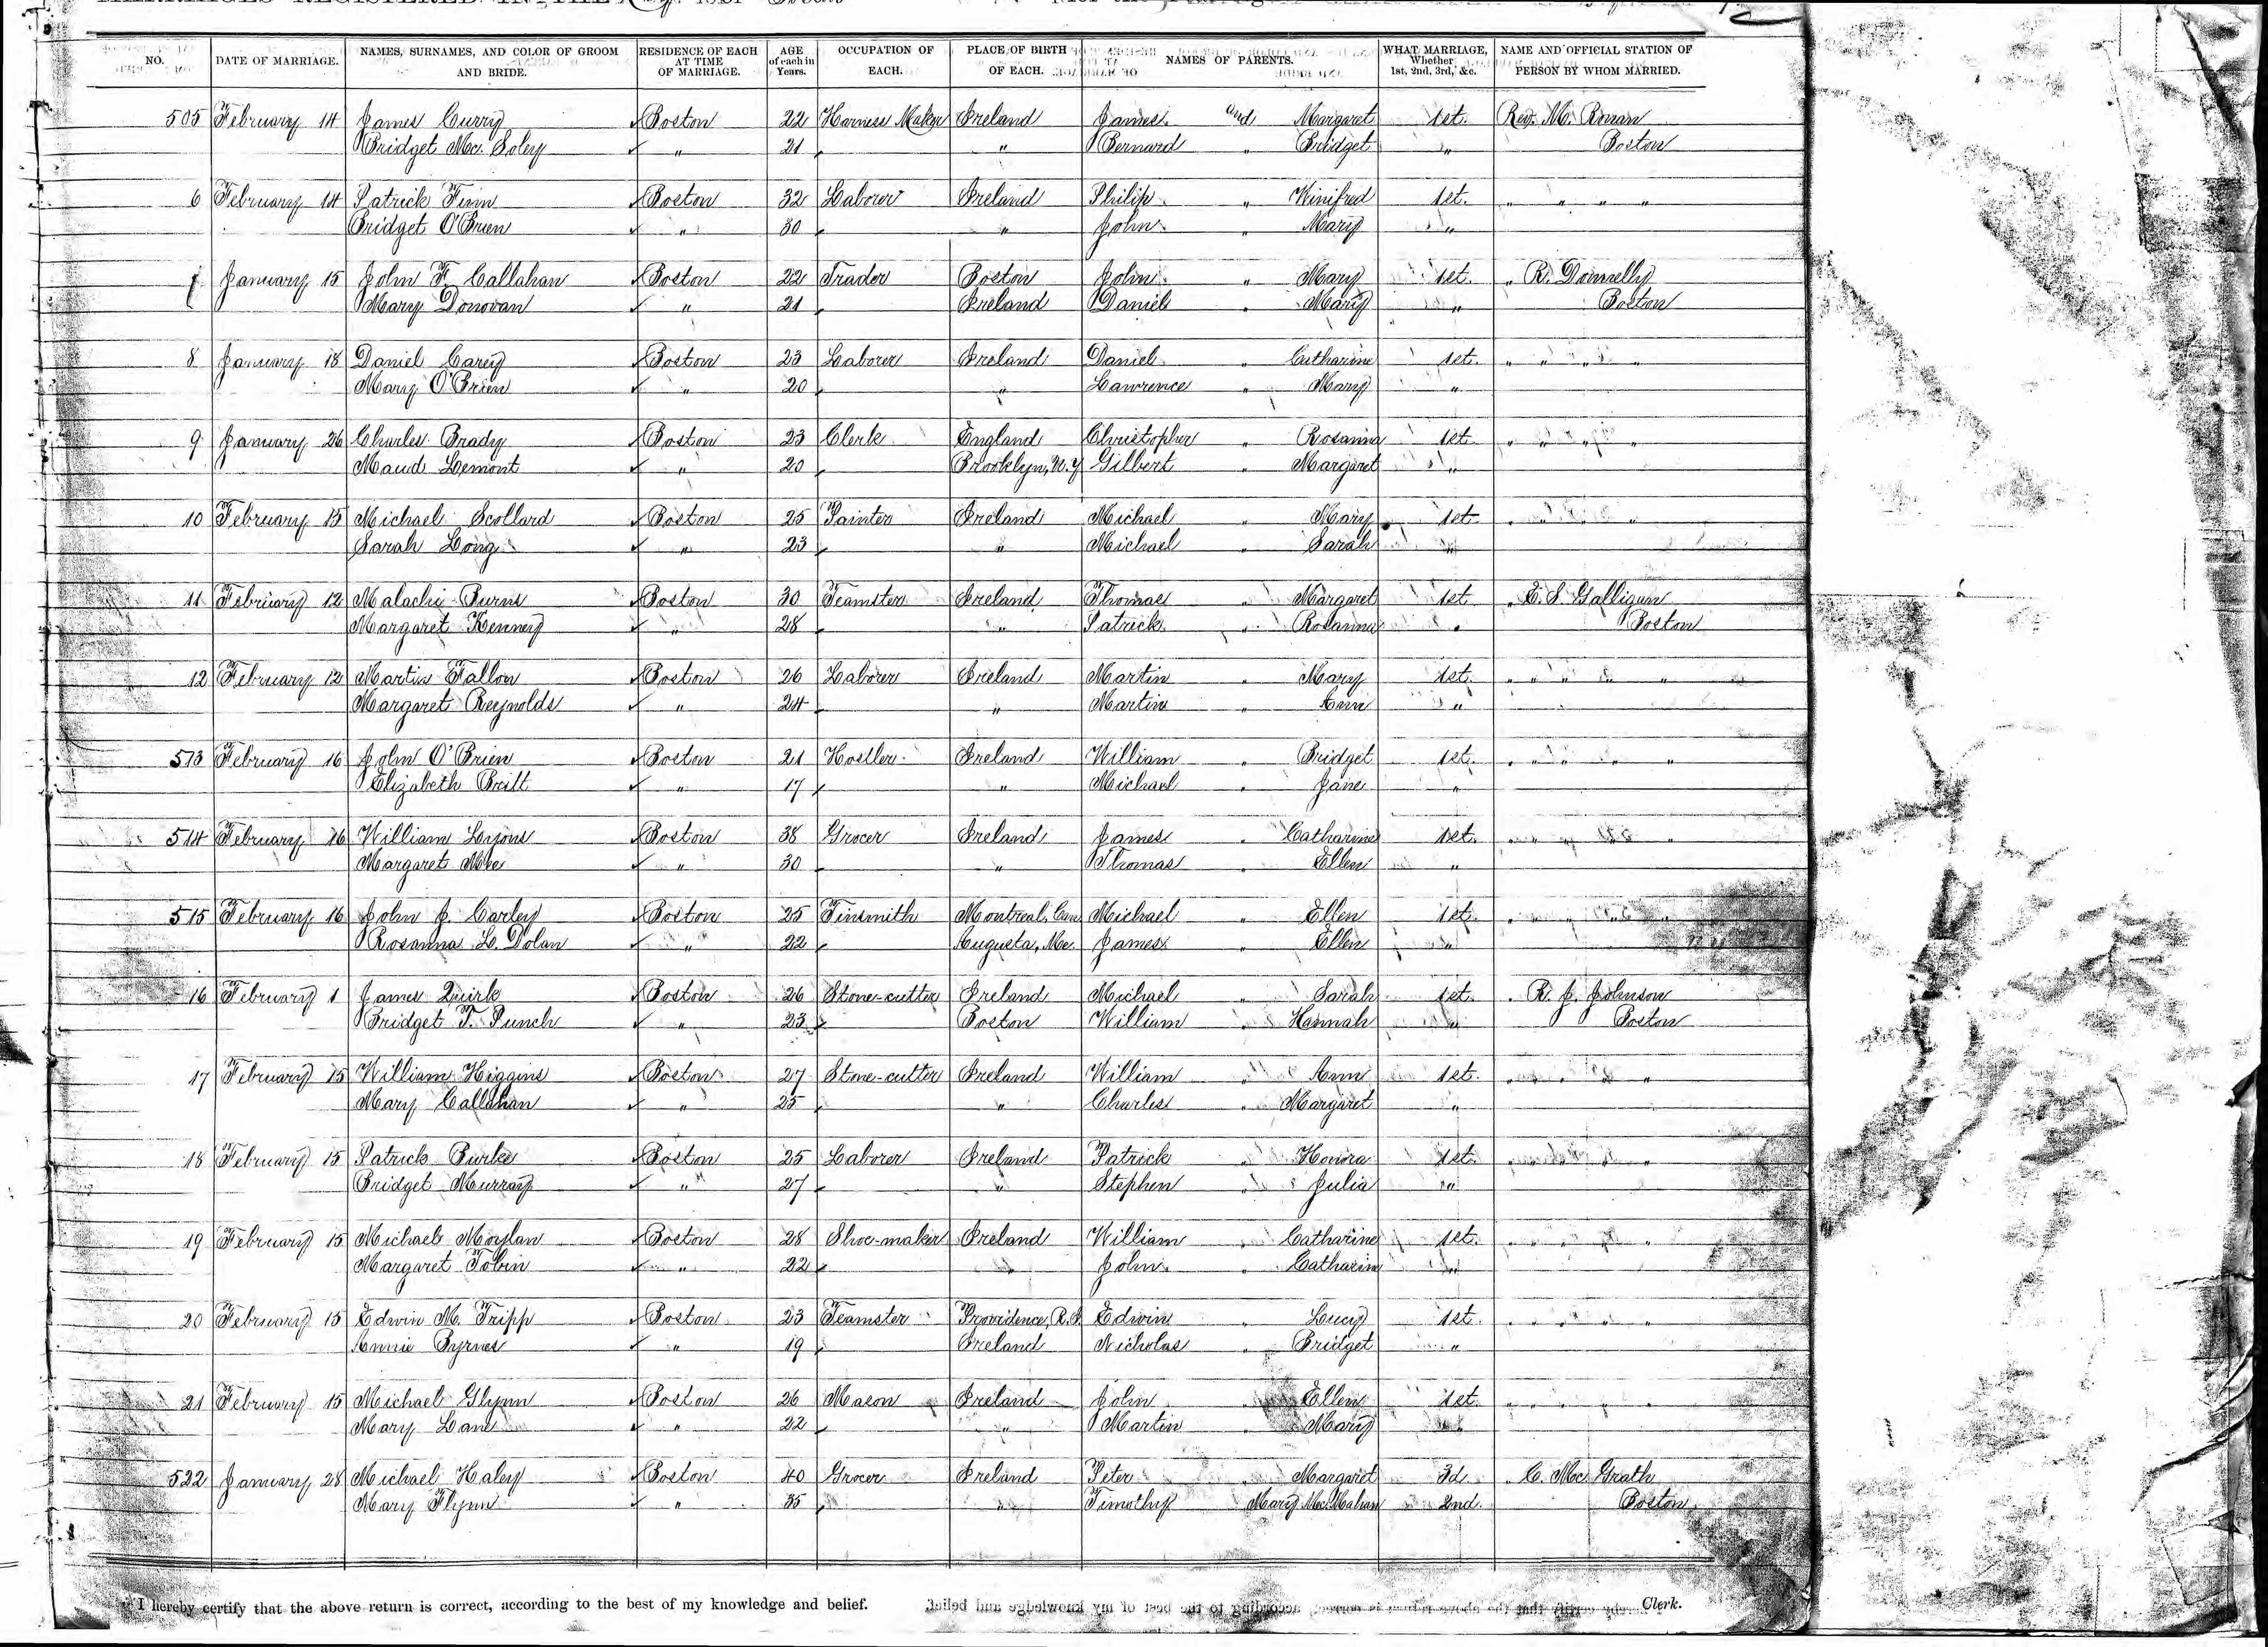 MARRIAGES REGISTERED IN THE City of Boston for the
NO. DATE OF MARRIAGE. NAMES, SURNAMES, AND COLOR OF GROOM AND BRIDE. RESIDENCE OF EACH AT TIME OF MARRIAGE. AGE of each in Years. OCCUPATION OF EACH. PLACE OF BIRTH OF EACH. NAMES OF PARENTS. WHAT MARRIAGE, Whether 1st, 2nd, 3rd, &c. NAME AND OFFICIAL STATION OF PERSON BY WHOM MARRIED.
505 February 14 James Curry Boston 22 Harness Maker Ireland James and Margaret 1st. Rev. M. Ronan
Bridget Mc. Soley " 21 " Bernard " Bridget " Boston
6 February 14 Patrick Finn Boston 32 Laborer Ireland Philip " Winifred 1st. " " " "
Bridget O'Brien " 30 " John " Mary "
7 January 15 John F Callahan Boston 22 Trader Boston John " Mary 1st. " R. Donnelly
Mary Donovan " 21 Ireland Daniel " Mary " Boston
8 January 18 Daniel Carey Boston 23 Laborer Ireland Daniel " Catharine 1st. " " " "
Mary O'Brien " 20 " Lawrence " Mary "
9 January 26 Charles Brady Boston 23 Clerk England Christopher " Rosanna 1st. " " " "
Maud Lemont " 20 Brooklyn, N.Y Gilbert " Margaret "
10 February 15 Michael Scollard Boston 25 Painter Ireland Michael " Mary 1st. " " " "
Sarah Long " 23 " Michael " Sarah "
11 February 12 Malachi Burns Boston 30 Teamster Ireland Thomas " Margaret 1st " E. S. Galligan
Margaret Kenney " 28 " Patrick " Rosanna " Boston
12 February 12 Martin Fallon Boston 26 Laborer Ireland Martin " Mary 1st. " " " " "
Margaret Reynolds " 24 " Martin " Ann "
513 February 16 John O'Brien Boston 21 Hostler Ireland William " Bridget 1st. " " " " "
Elizabeth Britt " 17 " Michael " Jane "
514 February 16 William Lyons Boston 38 Grocer Ireland James " Catharine 1st. " " " " "
Margaret Mee " 30 " Thomas " Ellen "
515 February 16 John J. Carley Boston 25 Tinsmith Montreal, Can. Michael " Ellen 1st. " " " "
Rosanna L. Dolan " 22 Augusta, Me. James " Ellen "
16 February 1 James Quirk Boston 26 Stone-cutter Ireland Michael " Sarah 1st. " R. J. Johnson
Bridget T. Punch " 23 Boston William " Hannah " Boston
17 February 15 William Higgins Boston 27 Stone-cutter Ireland William " Ann 1st. " " " "
Mary Callahan " 25 " Charles " Margaret "
18 February 15 Patrick Burke Boston 25 Laborer Ireland Patrick " Honora 1st. " " " "
Bridget Murray " 27 " Stephen " Julia "
19 February 15 Michael Moylan Boston 28 Shoe-maker Ireland William " Catharine 1st. " " " "
Margaret Tobin " 22 " John " Catharine "
20 February 15 Edwin M. Tripp Boston 23 Teamster Providence, R.I. Edwin " Lucy 1st. " " " "
Annie Byrnes " 19 Ireland Nicholas " Bridget "
21 February 15 Michael Glynn Boston 26 Mason Ireland John " Ellen 1st. " " " "
Mary Lane " 22 " Martin " Mary "
522 January 28 Michael Haley Boston 40 Grocer Ireland Peter " Margaret 3d. " C. Mc. Grath
Mary Flynn " 35 " Timothy Mary Mc. Mahan 2nd. Boston
I hereby certify that the above return is correct, according to the best of my knowledge and belief. Clerk.